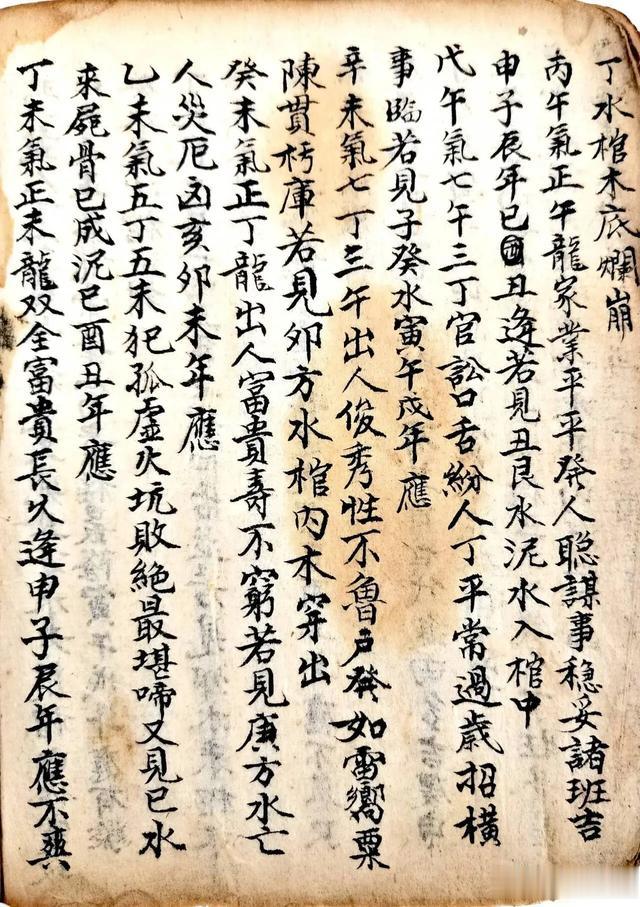 丁水棺木底爛崩
丙午氣正午龍家業平平發人聰謀事穩妥諸班吉
申子辰年巳酉丑逢若見丑艮水泥水入棺中
戊午氣七午三丁官訟口舌紛人丁平常過歲招橫
事臨若見子癸水寅午戌年應
辛未氣七丁三午出人俊秀性不魯戶發如雷響粟
陳貫朽庫若見卯方水棺內木穿出
癸未氣正丁龍出人富貴壽不窮若見庚方水亡
人災厄凶亥卯未年應
乙未氣五丁五未犯孤虛火坑敗絕最堪啼又見巳水
來屍骨已成泥巳酉丑年應
丁未氣正未龍双全富貴長久逢申子辰年應不爽